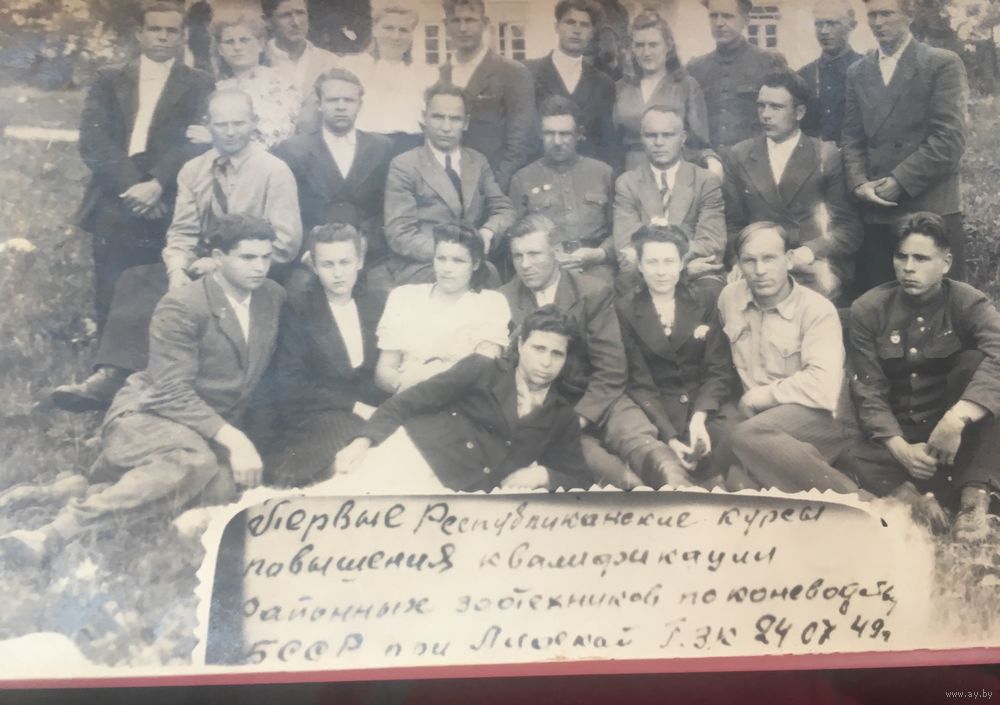 Первые Республиканские курсы
повышения квалификации
Районных зоотехников по коневодству
БССР при Г.З.К 24 07 49г
www.ay.by